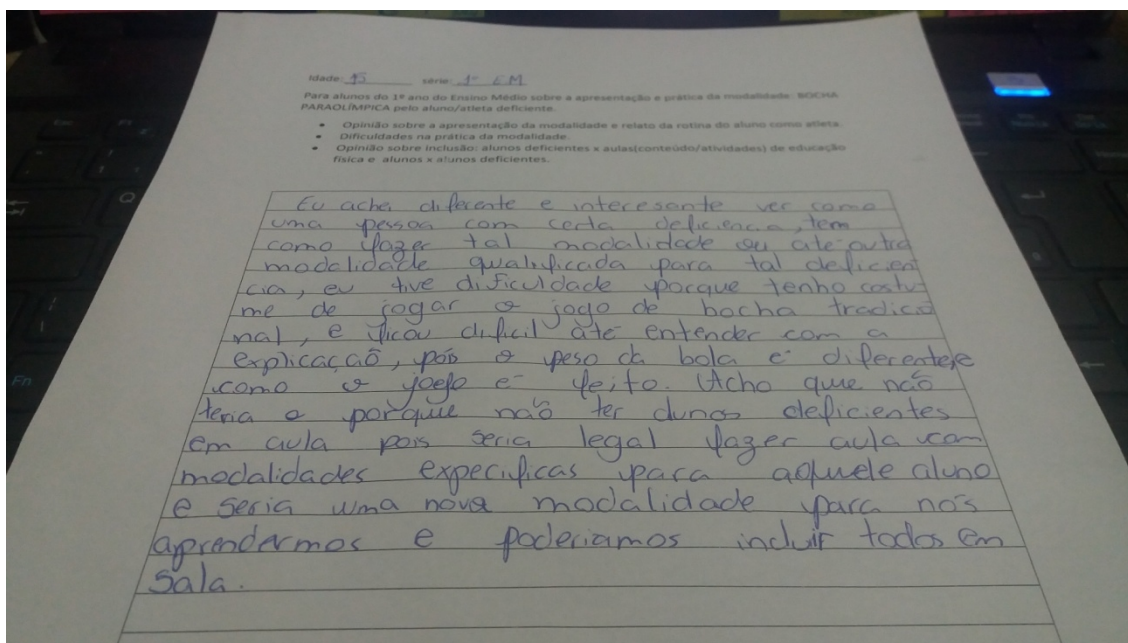 Idade: 15 série: 1º EM
Para alunos do 1º ano do Ensino Médio sobre a apresentação e prática da modalidade: BOCHA
PARAOLÍMPICA pelo aluno/atleta deficiente.
• Opinião sobre a apresentação da modalidade e relato da rotina do aluno como atleta.
• Dificuldades na prática da modalidade.
• Opinião sobre inclusão: alunos deficientes x aulas(conteúdo/atividades) de educação
física e alunos x alunos deficientes.
Eu achei diferente e interesante ver como
uma pessoa com certa deficiência, tem
como fazer tal modalidade ou até outra
modalidade qualificada para tal deficien
cia, eu tive dificuldade porque tenho costu
me de jogar o jogo de bocha tradicio
nal, e ficou dificil até entender com a
explicação, pois o peso da bola é diferente e
como o jogo é feito. Acho que não
teria o porque não ter alunos deficientes
em aula pois seria legal fazer aula com
modalidades expecificas para aquele aluno
e seria uma nova modalidade para nós
aprendermos e poderiamos incluir todos em
sala.
Fn